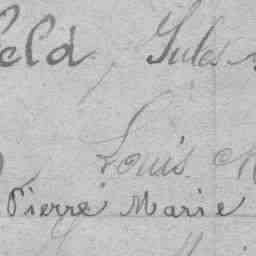 eld, Jules
Louis M
Pierre Marie